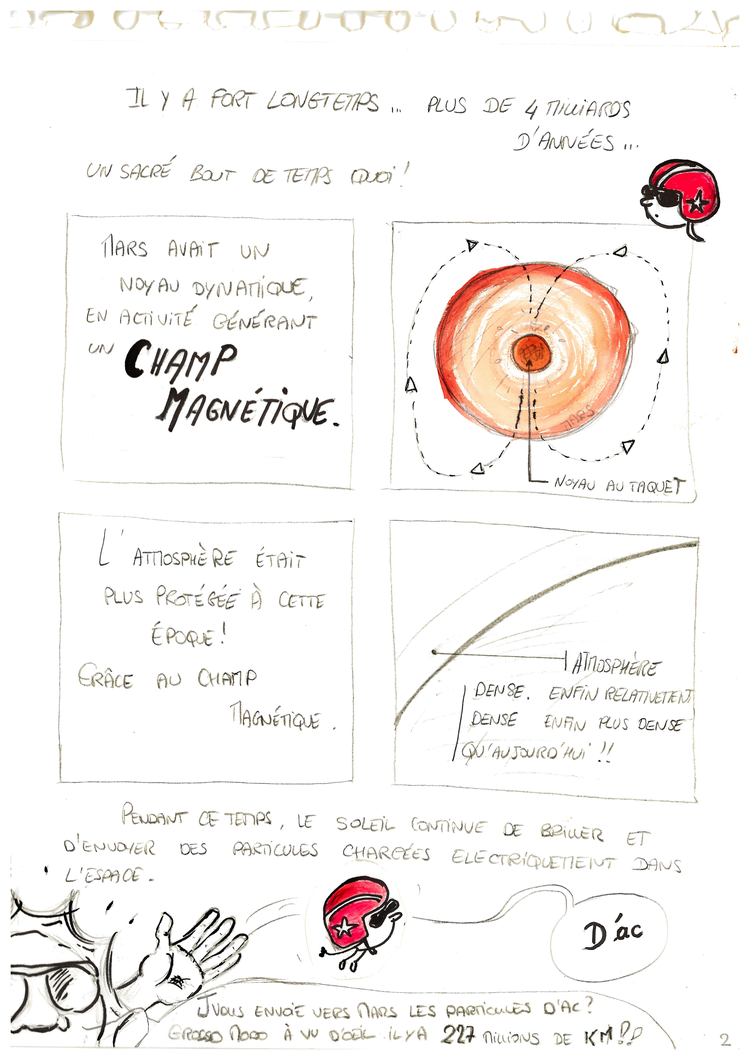 IL Y A FORT LONGTEMPS... PLUS DE 4 MILLIARDS
D'ANNÉES...
UN SACRÉ BOUT DE TEMPS QUOI !
MARS AVAIT UN
NOYAU DYNAMIQUE,
EN ACTIVITÉ GÉNÉRANT
UN CHAMP
MAGNÉTIQUE.
MARS
NOYAU AU TAQUET
L'ATMOSPHÈRE ÉTAIT
PLUS PROTÉGÉE À CETTE
ÉPOQUE !
GRÂCE AU CHAMP
MAGNÉTIQUE.
ATMOSPHÈRE
DENSE. ENFIN RELATIVEMENT
DENSE ENFIN PLUS DENSE
QU'AUJOURD'HUI !!
PENDANT CE TEMPS, LE SOLEIL CONTINUE DE BRILLER ET
D'ENVOYER DES PARTICULES CHARGÉES ELECTRIQUEMENT DANS
L'ESPACE.
D'ac
J'VOUS ENVOIE VERS MARS LES PARTICULES D'AC ?
GROSSO MODO À VU D'OEIL IL Y A 227 MILLIONS DE KM !!
2